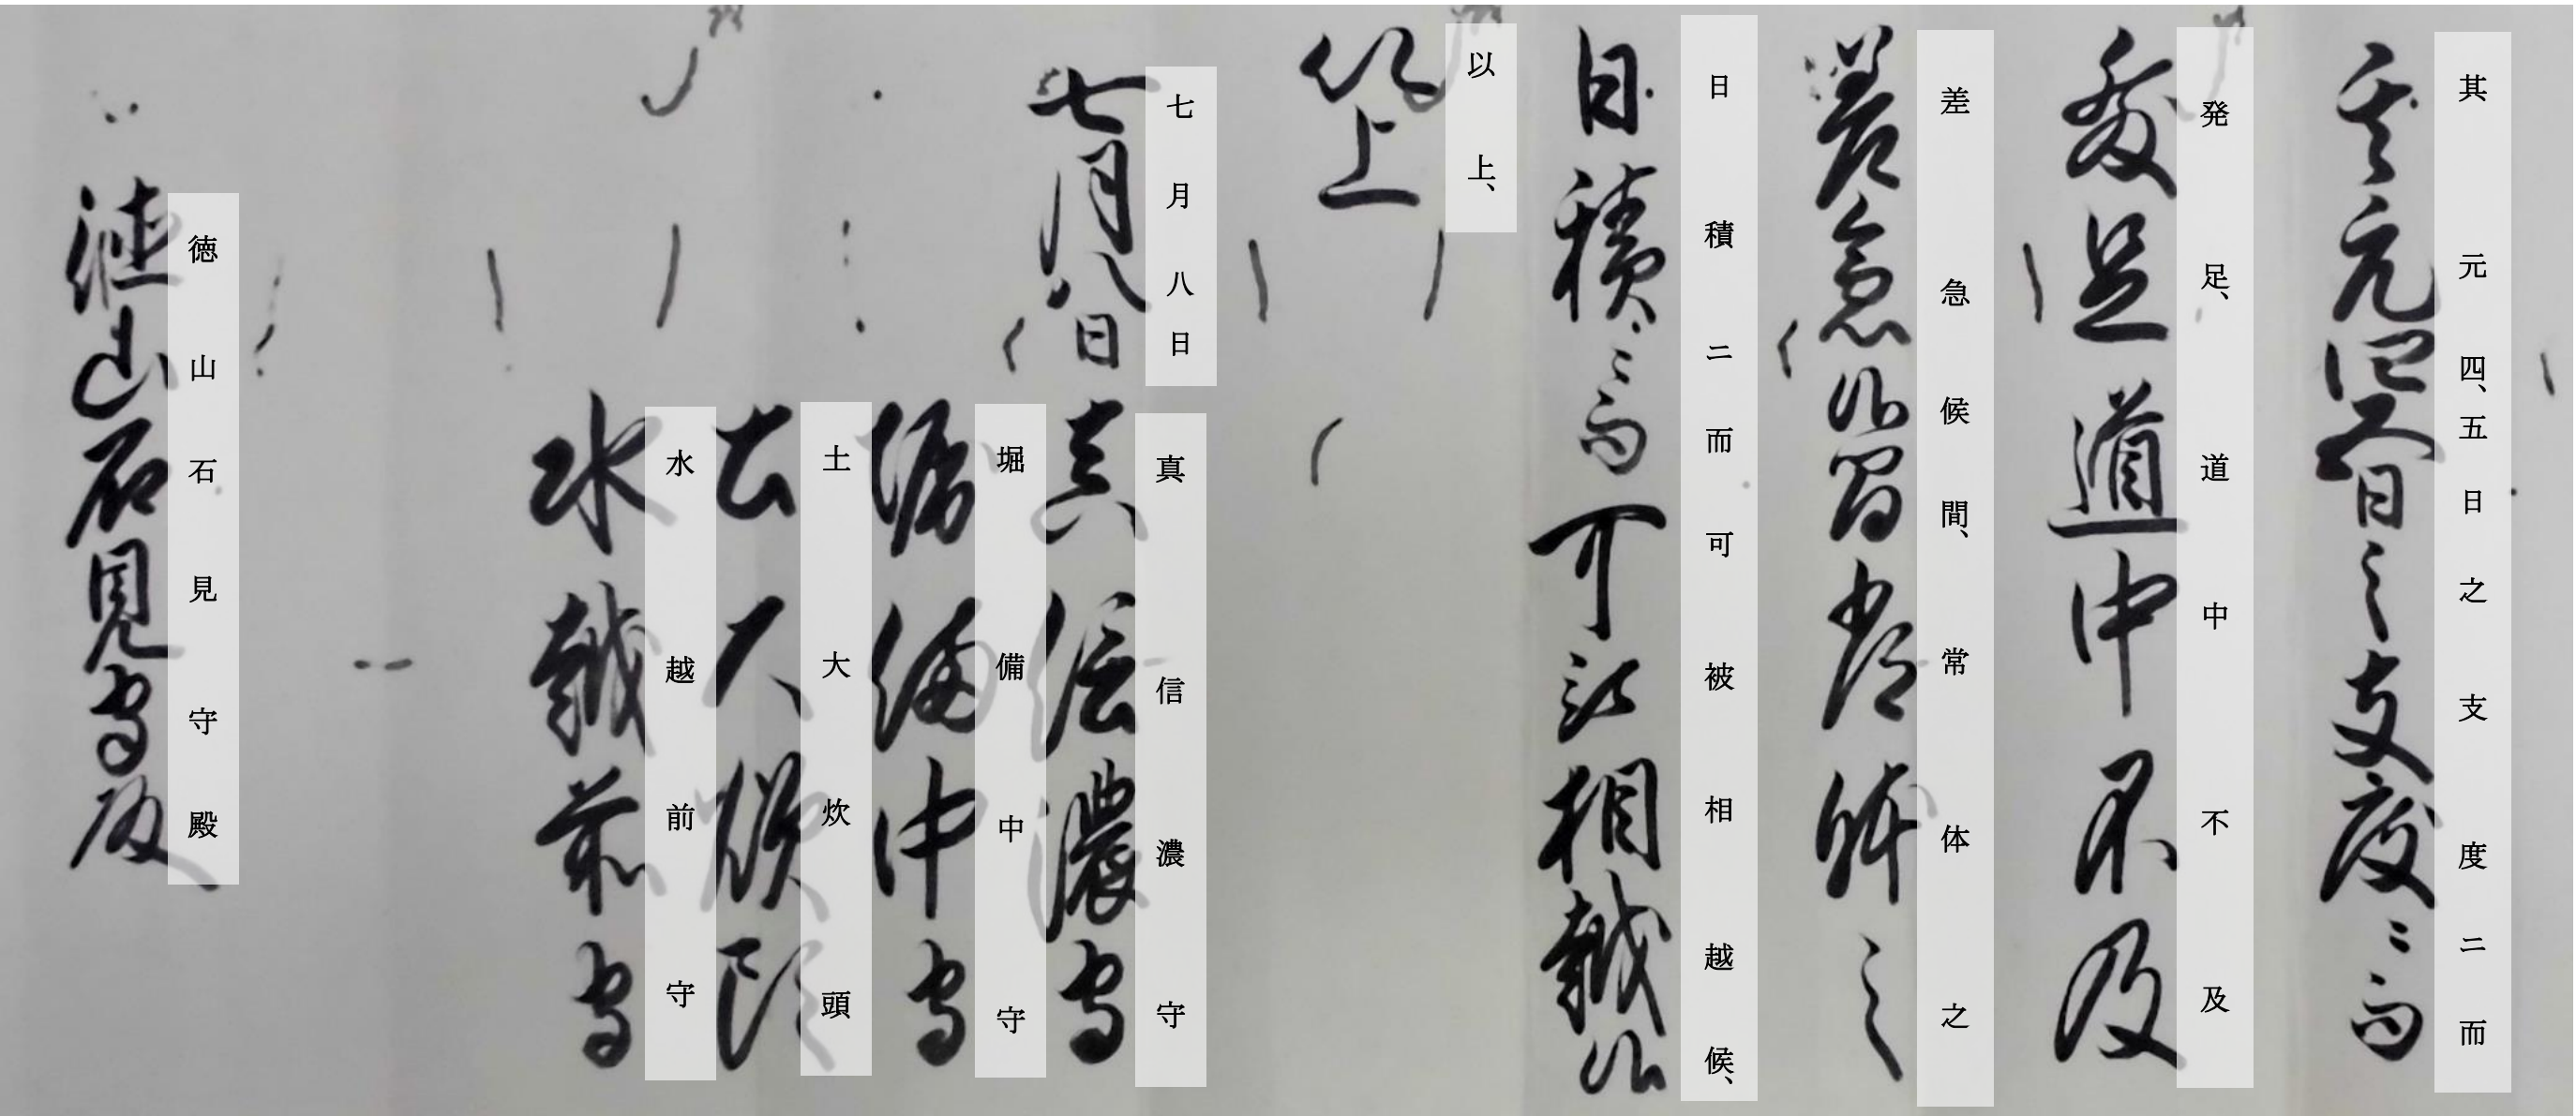 其元四、五日之支度ニ而
発足、道中不及
差急候間、常体之
日積ニ而可被相越候、
以上、
七月八日
真信濃守
堀備中守
土大炊頭
水越前守
徳山石見守殿